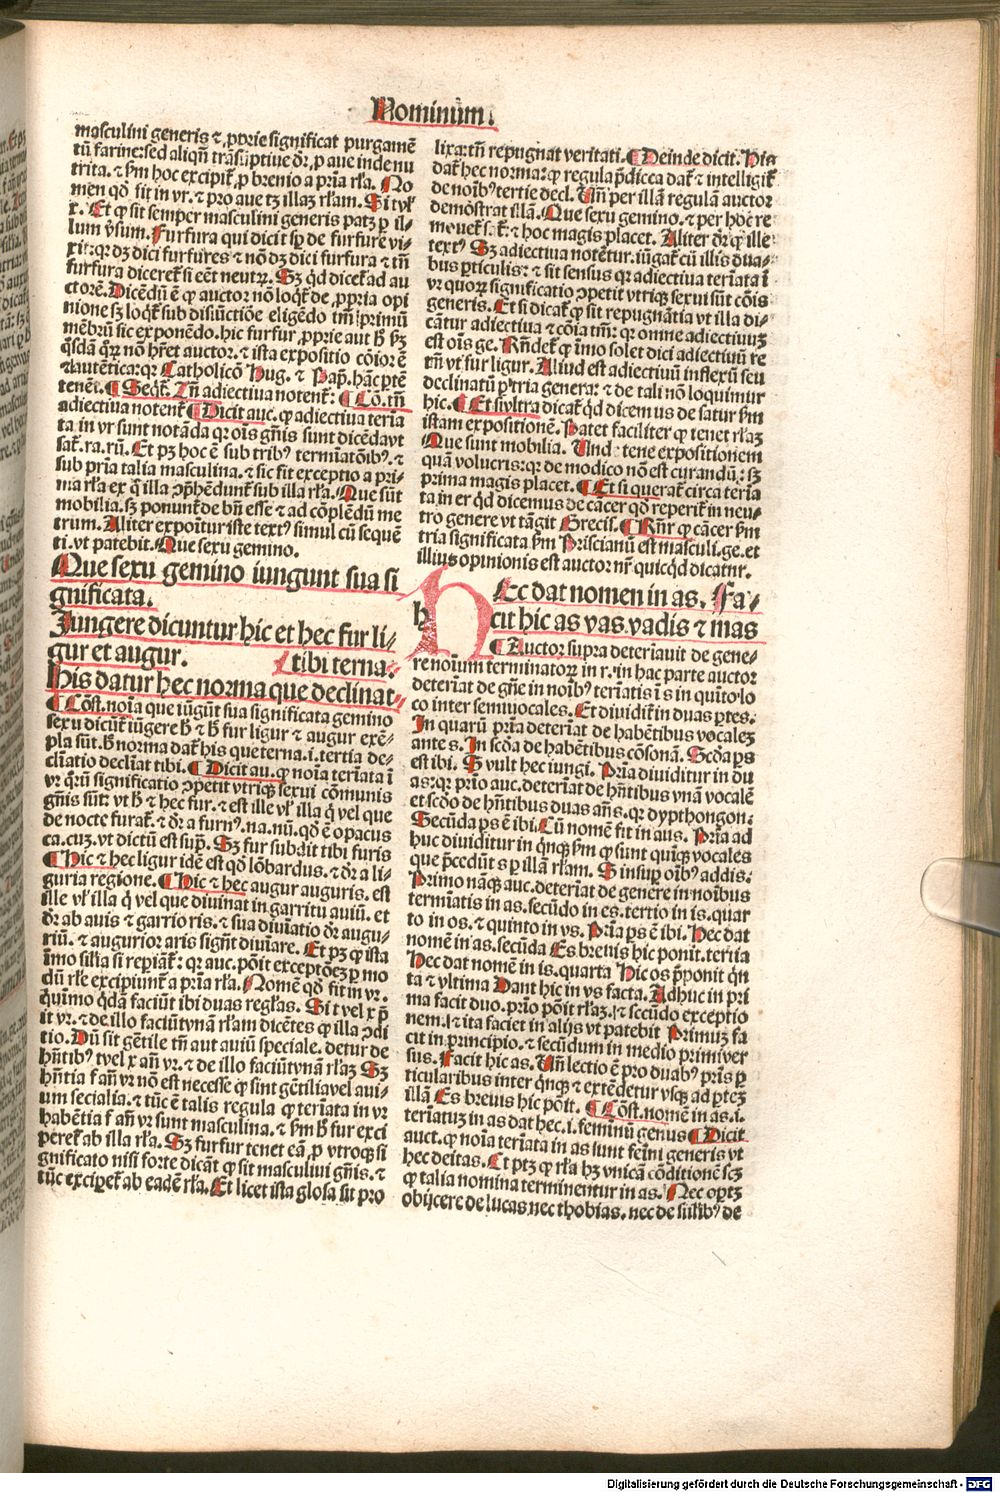 Nominũm.
masculini generis ⁊ ꝓprie significat purgamẽ
tũ farine: sed aliqñ trãsũptiue dr̃, ꝓ aue inde nu
trita. ⁊ ẜm hoc excipit᷑ ꝓ brenio a pria rl̃a. No
men qđ fit in vr. ⁊ pro aue tꝫ illaꝫ rl̃am. Si tul᷑
lum ṽsum. Furfura qui dicit sꝑ de furfure vi-
furfura diceret᷑ si eẽt neutꝝ. Sꝫ qđ dicet᷑ ad au
ctorẽ. Dicẽdũ ẽ ꝙ auctor nõ loqt᷑ de ꝓpria opi
nione sꝫ loqt᷑ sub disiũctiõe eligẽdo tm̃ primũ
mẽbrũ sic exponẽdo. hic furfur ꝓprie aut
qsdã nõ hr̃et auctor. ⁊ ista expositio cõior ẽ
⁊ autẽtica: qꝛ Catholicõ Hug. ⁊ Pap. hãc ꝑtẽ
tenẽt. ¶ Seqt᷑. Tñ adiectiua notent᷑: ¶ Cõ. tm̃
adiectiua notent᷑ ¶ Dicit auc. ꝙ adiectiua teria
ta in vr sunt notãda qꝛ oĩs gñis sunt dicẽda vt
sat᷑. ra. rũ. Et pꝫ hoc ẽ sub tribꝰ termĩatõibꝰ. ⁊
sub pria talia masculina. ⁊ sic fit exceptio a pri-
ma rl̃a ex illa ꝯphẽdunt᷑ sub illa rl̃a. Que sũt
mobilia. sꝫ ponunt᷑ de bñ esse ⁊ ad cõplẽdũ me
trum. Aliter expoĩtur iste textꝰ simul cũ sequẽ
ti. vt patebit. Que sexu gemino.
Que sexu gemino iungunt sua si
gnificata.
Jungere dicuntur hic et hec fur li-
gur et augur. tibi terna
His datur hec norma que declinat
¶ Cõst. noĩa que iũgũt sua significata gemino
sexu dicũt᷑ iũgere ħ ⁊ ħ fur ligur ⁊ augur exẽ-
pla sũt. ħ norma dat᷑ his que terna. i. tertia de-
clĩatio declĩat tibi. ¶ Dicit au. ꝙ noĩa teriata ĩ
vr qrũ significatio ꝯpetit vtriqꝫ sexui cõmunis
gñis sũt: vt ħ ⁊ hec fur. ⁊ est ille vl᷑ illa vel que
de nocte furat᷑. ⁊ dr̃ a furnꝰ. na. nũ. qđ ẽ opacus
ca. cuꝫ. vt dictũ est supr̃. Sꝫ fur subdit tibi furis
¶ Hic ⁊ hec ligur idẽ est qđ lõbardus. ⁊ dr̃ a li-
guria regione. ¶ Hic ⁊ hec augur auguris. est
ille vl᷑ illa vel que diuinat in garritu auiũ. et
dr̃ ab auis ⁊ garrio ris. ⁊ sua diuĩatio dr̃ augu-
riũ. ⁊ augurior aris signt̃ diuĩare. Et pꝫ ꝙ ista
ĩmo silia si reꝑiat᷑: qꝛ auc. põit exceptõeꝫ ꝑ mo
dũ rl̃e excipiunt᷑ a pria rl̃a. Nomẽ qđ fit in vr.
quĩmo qdã faciũt ibi duas regl̃as. Si t vel x p̃
it vr. ⁊ de illo faciũt vnã rl̃am dicẽtes ꝙ illa ꝯdi
tio. Dũ sit gẽtile tm̃ aut auiũ speciale. detur de
hñtibꝰ t vel x añ vr. ⁊ de illo faciũt vnã rl̃aꝫ Sꝫ
hñtia f añ vr nõ est necesse ꝙ sint gẽtilia vel aui-
um specialia. ⁊ tũc ẽ talis regula ꝙ teriata in vr
habẽtia f añ vr sunt masculina. ⁊ ẜm ħ fur exci
peret᷑ ab illa rl̃a. Sꝫ furfur tenet eã ꝓ vtroqꝫ si
gnificato nisi forte dicãt ꝙ sit masculini gñis. ⁊
tũc exciperet᷑ ab eadẽ rl̃a. Et licet ista glosa sit pro
lixa: tñ repugnat veritati. ¶ Deinde dicit. His
dat᷑ hec norma: ꝙ regula p̃dicta dat᷑ ⁊ intelligit᷑
de noĩbꝰ tertie decl. Vñ per illã regulã auctor
demõstrat illã. Que sexu gemino. ⁊ per hoc re
mouet᷑ ⁊ hoc magis placet. Aliter dr̃ ꝙ ille
textꝰ Sꝫ adiectiua notẽtur. iũgat᷑ cũ illis dua-
bus ꝑticulis: ⁊ sit sensus qꝛ adiectiua teriata ĩ
vr quoꝝ significatio ꝯpetit vtriqꝫ sexui sũt cõis
generis. Et si dicat᷑ ꝙ sit repugnãtia vt illa di-
cãtur adiectiua ⁊ cõia tm̃: qꝛ omne adiectiuuꝫ
est oĩs ge. Rñdet᷑ ꝙ ĩmo solet dici adiectiuũ re
tm̃ vt fur ligur. Aliud est adiectiuũ inflexũ seu
declinatũ ꝑ tria genera: ⁊ de tali nõ loquimur
hic. ¶ Et si vltra dicat᷑ qđ dicemus de satur ẜm
istam expositionẽ. Patet faciliter ꝙ tenet rl̃aꝫ
Que sunt mobilia. Vnd tene expositionem
quã volucris: qꝛ de modico nõ est curandũ: sꝫ
prima magis placet. ¶ Et si querat᷑ circa teria
ta in er qđ dicemus de cãcer qđ reperit᷑ in neu-
tro genere vt tãgit Grecis. ¶ Rñr ꝙ cãcer ẜm
tria significata ẜm Priscianũ est masculi. ge. et
illius opinionis est auctor nr̃ quicqđ dicatur.
Hec dat nomen in as. Fa-
cit hic as vas vadis ⁊ mas
¶ Auctor supra determinauit de gene-
re noĩum terminatoꝝ in r. in hac parte auctor
determĩat de gñe in noĩbꝰ teriatis ĩ s in quĩto lo
co inter semiuocales. Et diuidit᷑ in duas ꝑtes.
In quarũ pria determĩat de habẽtibus vocaleꝫ
ante s. In scđa de habẽtibus cõsonã. Scđa ꝑs
est ibi. S vult hec iungi. Pria diuiditur in du
as: qꝛ prio auc. determĩat de hñtibus vnã vocalẽ
et scđo de hñtibus duas añ s. qꝛ dypthongon:
Secũda ꝑs ẽ ibi. Cũ nomẽ fit in aus. Pria ad
huc diuiditur in qnqꝫ ẜm ꝙ sunt quiqꝫ vocales
que p̃cedũt s ꝑ illã rl̃am. S insuꝑ oĩbꝰ addis:
Primo nãqꝫ auc. determĩat de genere in noĩbus
termĩatis in as. secũdo in es. tertio in is. quar
to in os. ⁊ quinto in vs. Pria ꝑs ẽ ibi. Hec dat
nomẽ in as. secũda Es breuis hic ponit. tertia
Hec dat nomẽ in is. quarta Hic os p̃ponit qn
ta ⁊ vltima Dant hic in vs facta. Adhuc in pri
ma facit duo. prĩo põit rl̃aꝫ. ⁊ secũdo exceptio
nem. ⁊ ita faciet in alijs vt patebit Primuꝫ fa
cit in principio. ⁊ secũdum in medio primi ver
sus. Facit hic as. Vñ lectio ẽ pro duabꝰ pris ꝑ
ticularibus inter qnqꝫ ⁊ extẽdetur vsqꝫ ad ꝑteꝫ
illã Es breuis hic põit. ¶ Cõst. nomẽ in as. i.
terĩatuꝫ in as dat hec. i. femininũ genus ¶ Dicit
auct. ꝙ noĩa terĩata in as sunt feĩni generis vt
hec deitas. Et ptꝫ ꝙ rl̃a hꝫ vnicã cõditionẽ scꝫ
ꝙ talia nomina terminentur in as. Nec oꝑtꝫ
obijcere de lucas nec thobias. nec de silibꝰ de
Digitalisierung gefördert durch die Deutsche Forschungsgemeinschaft - DFG